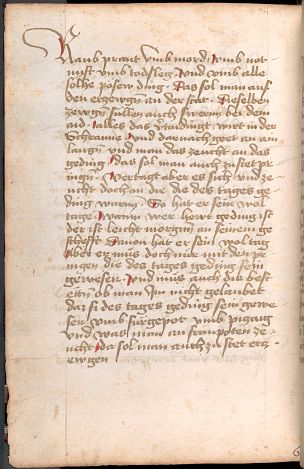 Raub prant vmb mord vmb not
nuft vmb todsleg vnd vmb alle
solhe posew ding Das sol man auf
den erczewgn an der stat Dieselben
zewgn sullen auch swern bei dem
aid alles das vrtailnigt wirt in der
Schranne vnd darnach get zu am
laugn vnd man das zeucht an das
geding das sol man auch zu stet pr
ingn vertagt aber es sich vnd ze
ucht doch an die die des tages ge
ding warn Da hat er sein wol
tage wann wer hewt geding ist
der ist leicht morgen an seinem ge
schefft Davon hat er sein wol tag
aber er mus doch nur mit den pr
ingen die des tages geding sein
gewesen vnd mus auch das best
ettn ob man Im nicht gelaubet
daz si des tages geding sein gewe
sen vmb furgepot vmb pizaig
vnd was man an franpoten ze
ucht da sol man auch zu stet erz
ewgen
6